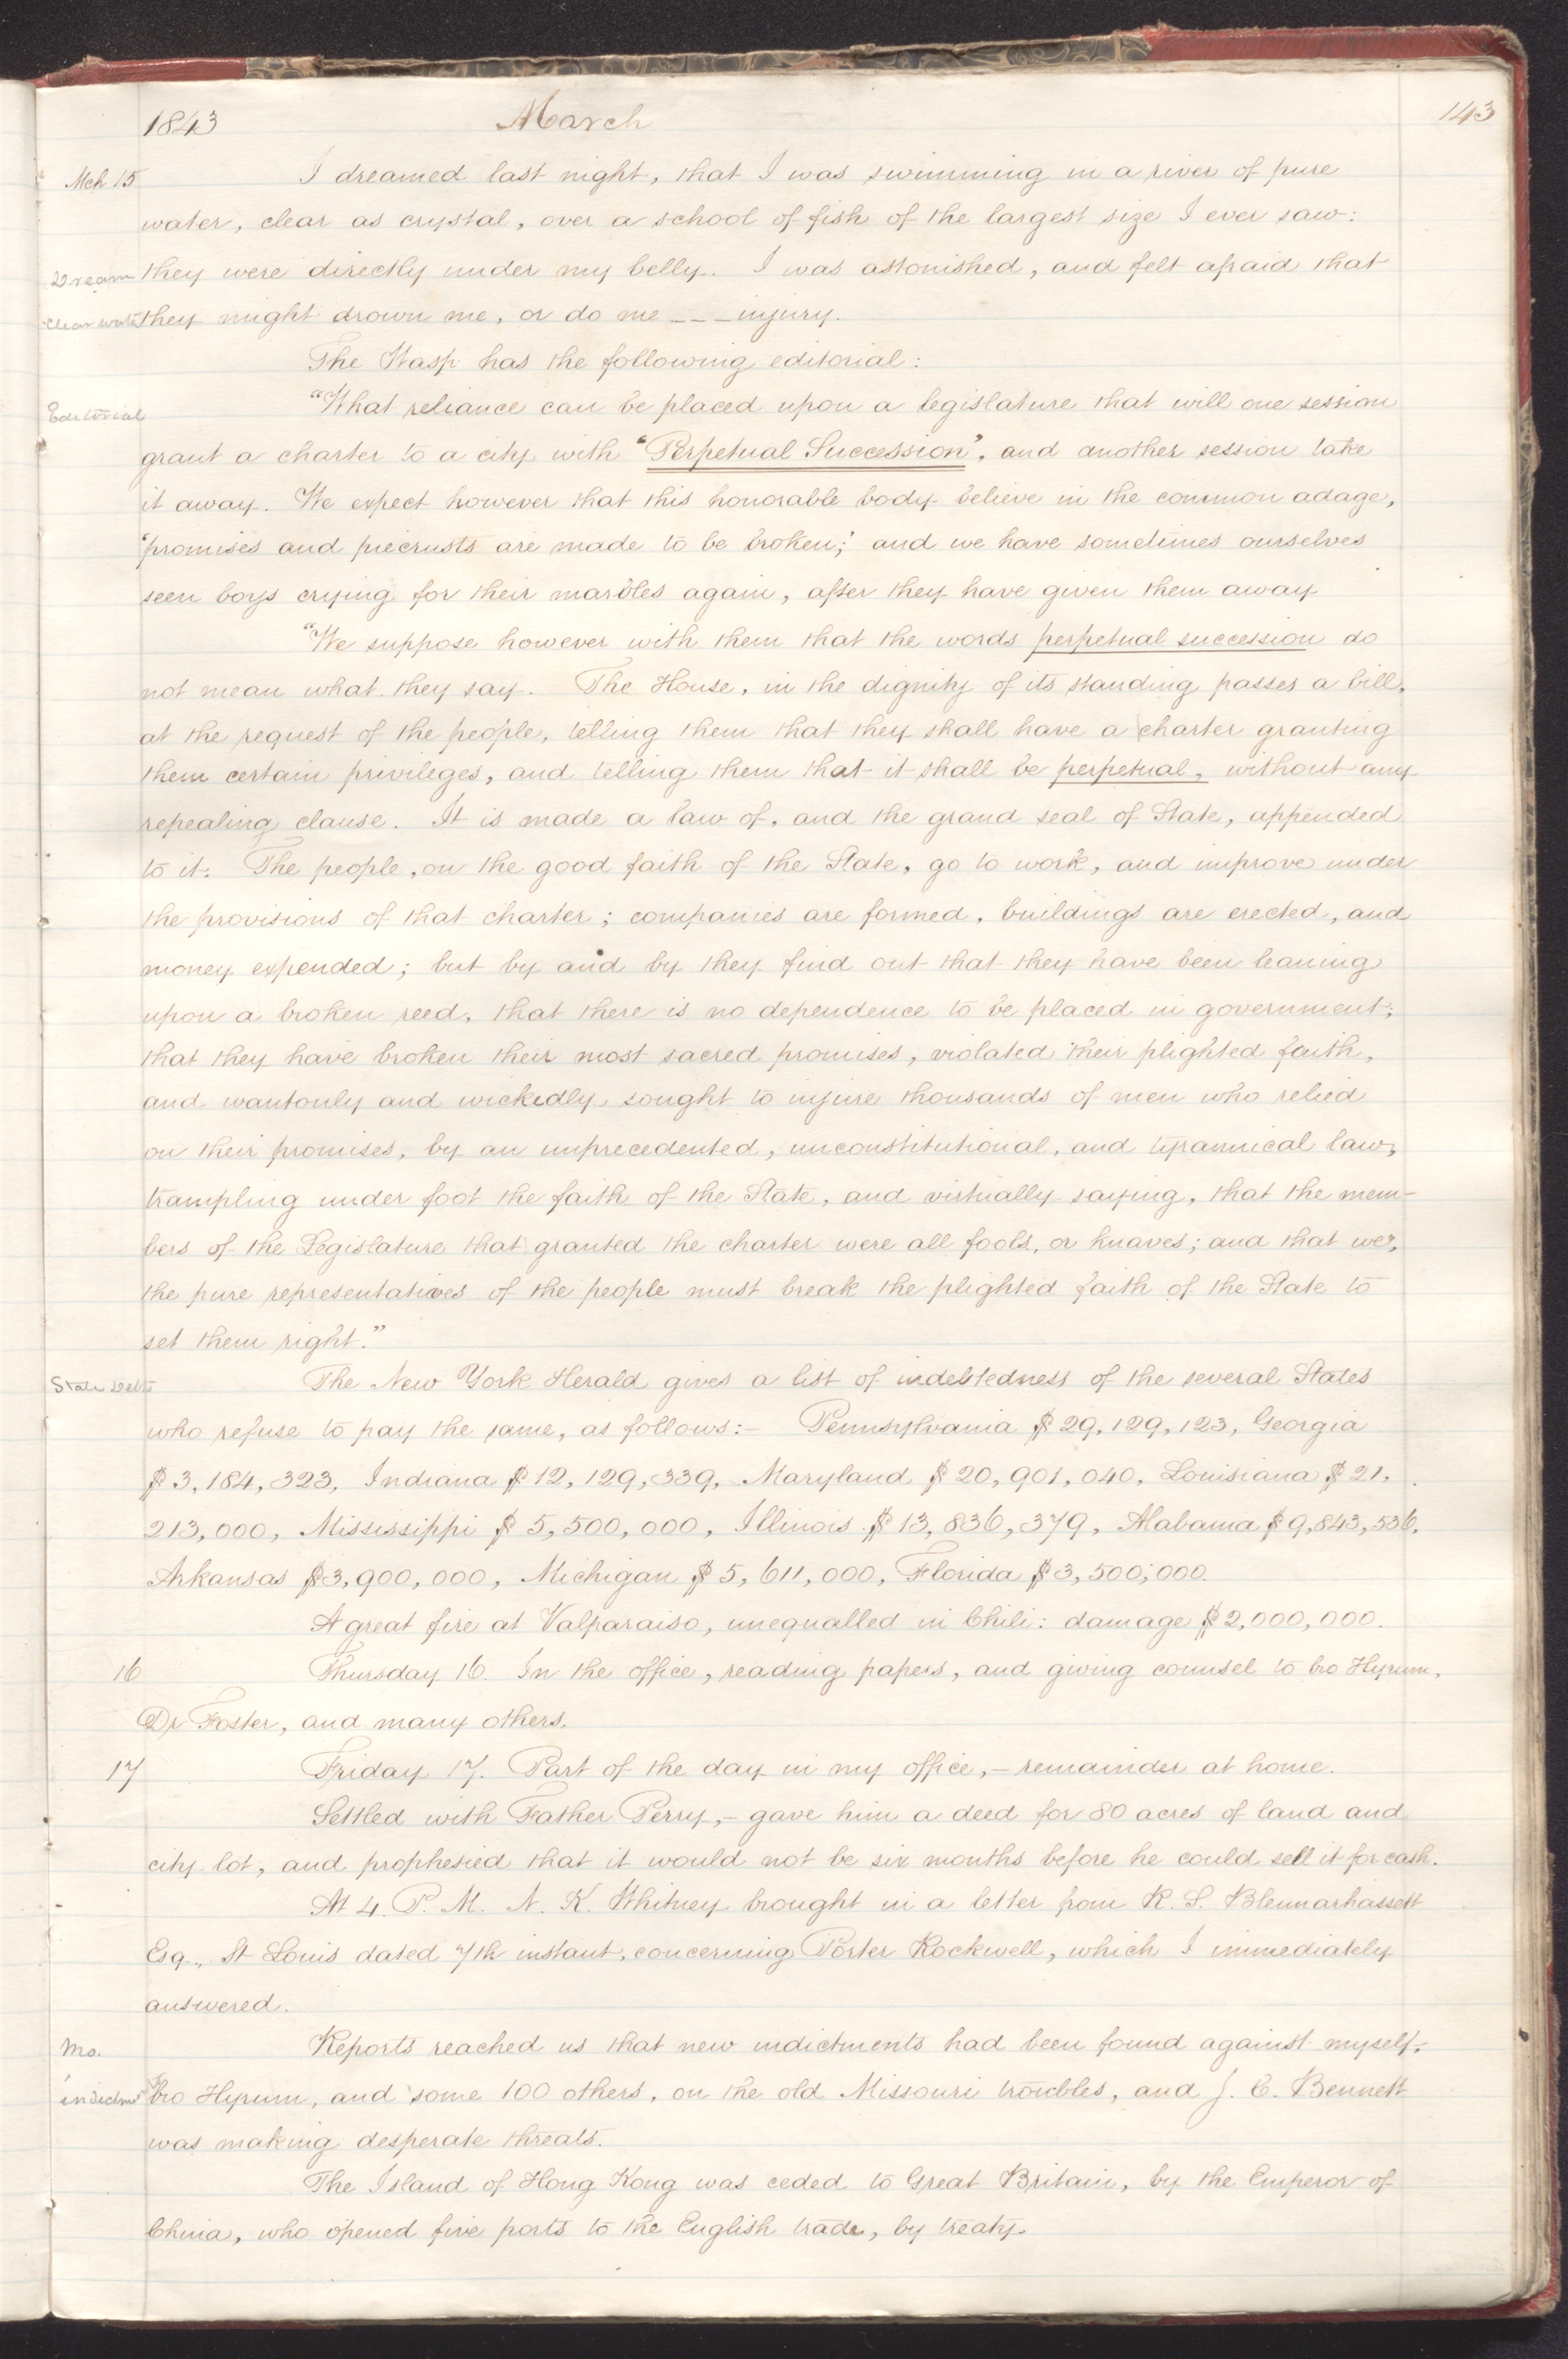 1843 March 143
Mch 15 I dreamed last night, that I was swimming in a river of pure
water, clear as crystal, over a school of fish of the largest size I ever saw:
Dream they were directly under my belly. I was astonished, and felt afraid that
clear water they might drown me, or do me _ _ _ injury.
The Wasp has the following editorial:
Editorial "What reliance can be placed upon a legislature that will one session
grant a charter to a city with "Perpetual Succession", and another session take
it away. We expect however that this honorable body believe in the common adage,
'promises and piecrusts are made to be broken;' and we have sometimes ourselves
seen boys crying for their marbles again, after they have given them away
"We suppose however with them that the words perpetual succession do
not mean what they say. The House, in the dignity of its standing passes a bill,
at the request of the people, telling them that they shall have a charter granting
them certain privileges, and telling them that it shall be perpetual, without any
repealing clause. It is made a law of, and the grand seal of State, appended
to it. The people, on the good faith of the State, go to work, and improve under
the provisions of that charter; companies are formed, buildings are erected, and
money expended; but by and by they find out that they have been leaning
upon a broken reed, that there is no dependence to be placed in government;
that they have broken their most sacred promises, violated their plighted faith,
and wantonly and wickedly sought to injure thousands of men who relied
on their promises, by an unprecedented, unconstitutional, and tyrannical law,
trampling under foot the faith of the State, and virtually saying, that the mem-
bers of the Legislature that granted the charter were all fools, or knaves; and that we,
the pure representatives of the people must break the plighted faith of the State to
set them right."
State Debts The New York Herald gives a list of indebtedness of the several States
who refuse to pay the same, as follows:- Pennsylvania $29,129,123, Georgia
$3,184,323, Indiana $12,129,339, Maryland $20,901,040, Louisiana $21,
213,000, Mississippi $5,500,000, Illinois $13,836,379, Alabama $9,843,536,
Arkansas $3,900,000, Michigan $5,611,000, Florida $3,500,000.
A great fire at Valparaiso, unequalled in Chili: damage $2,000,000.
16 Thursday 16. In the office, reading papers, and giving counsel to bro Hyrum,
Dr Foster, and many others.
17 Friday 17. Part of the day in my office,- remainder at home.
Settled with Father Perry,- gave him a deed for 80 acres of land and
city lot, and prophesied that it would not be six months before he could sell it for cash.
At 4. P. M. N. K. Whitney brought in a letter from R. S. Blennarhassett
Esq., St Louis dated 7th instant, concerning Porter Rockwell, which I immediately
answered.
Mo. Reports reached us that new indictments had been found against myself,
indictmt bro Hyrum, and some 100 others, on the old Missouri troubles, and J. C. Bennett
was making desperate threats.
The Island of Hong Kong was ceded to Great Britain, by the Emperor of
China, who opened five ports to the English trade, by treaty.